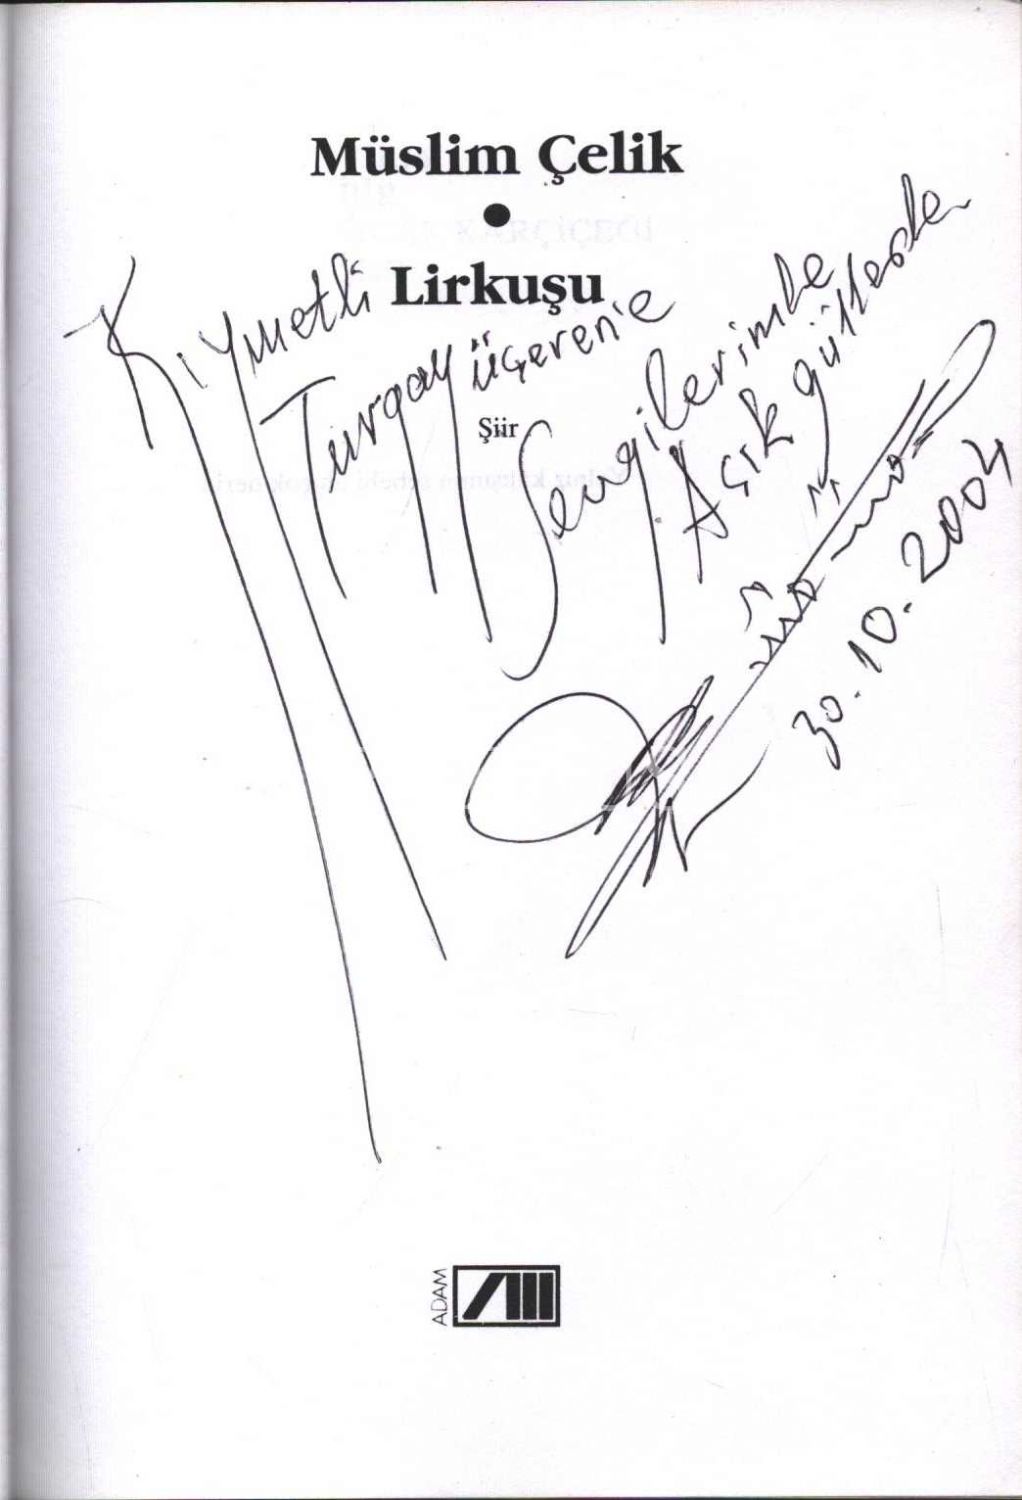 Müslim Çelik
Lirkuşu
Şiir
Kıymetli
Turgay üçeren'e
Sevgilerimle
Açık
30.10.2004
ADAM